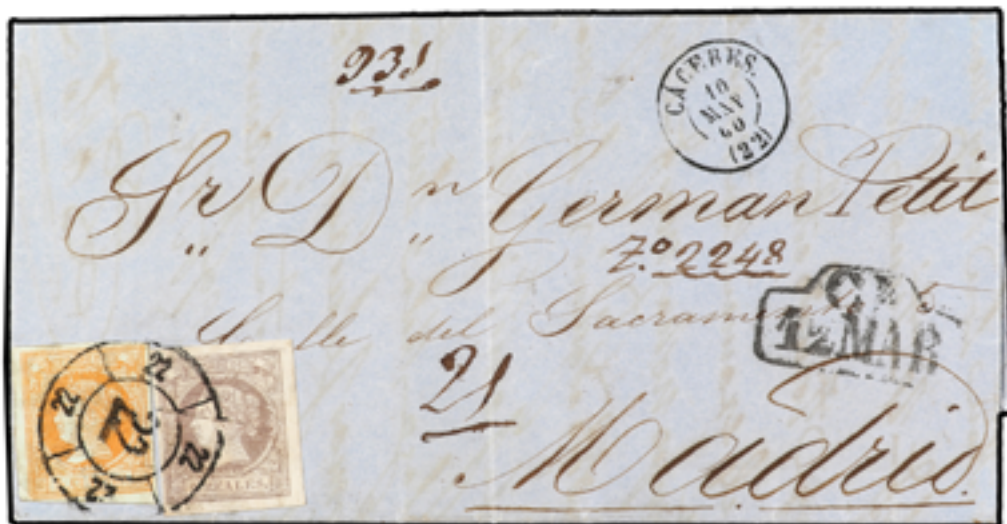 931
CÁCERES.
10
MAY
60
(22)
Sr D.n German Petit
Z.º 2248
Calle del Sacramento 5
C.
12 MAR
21
Madrid.
22
22
22
22
22